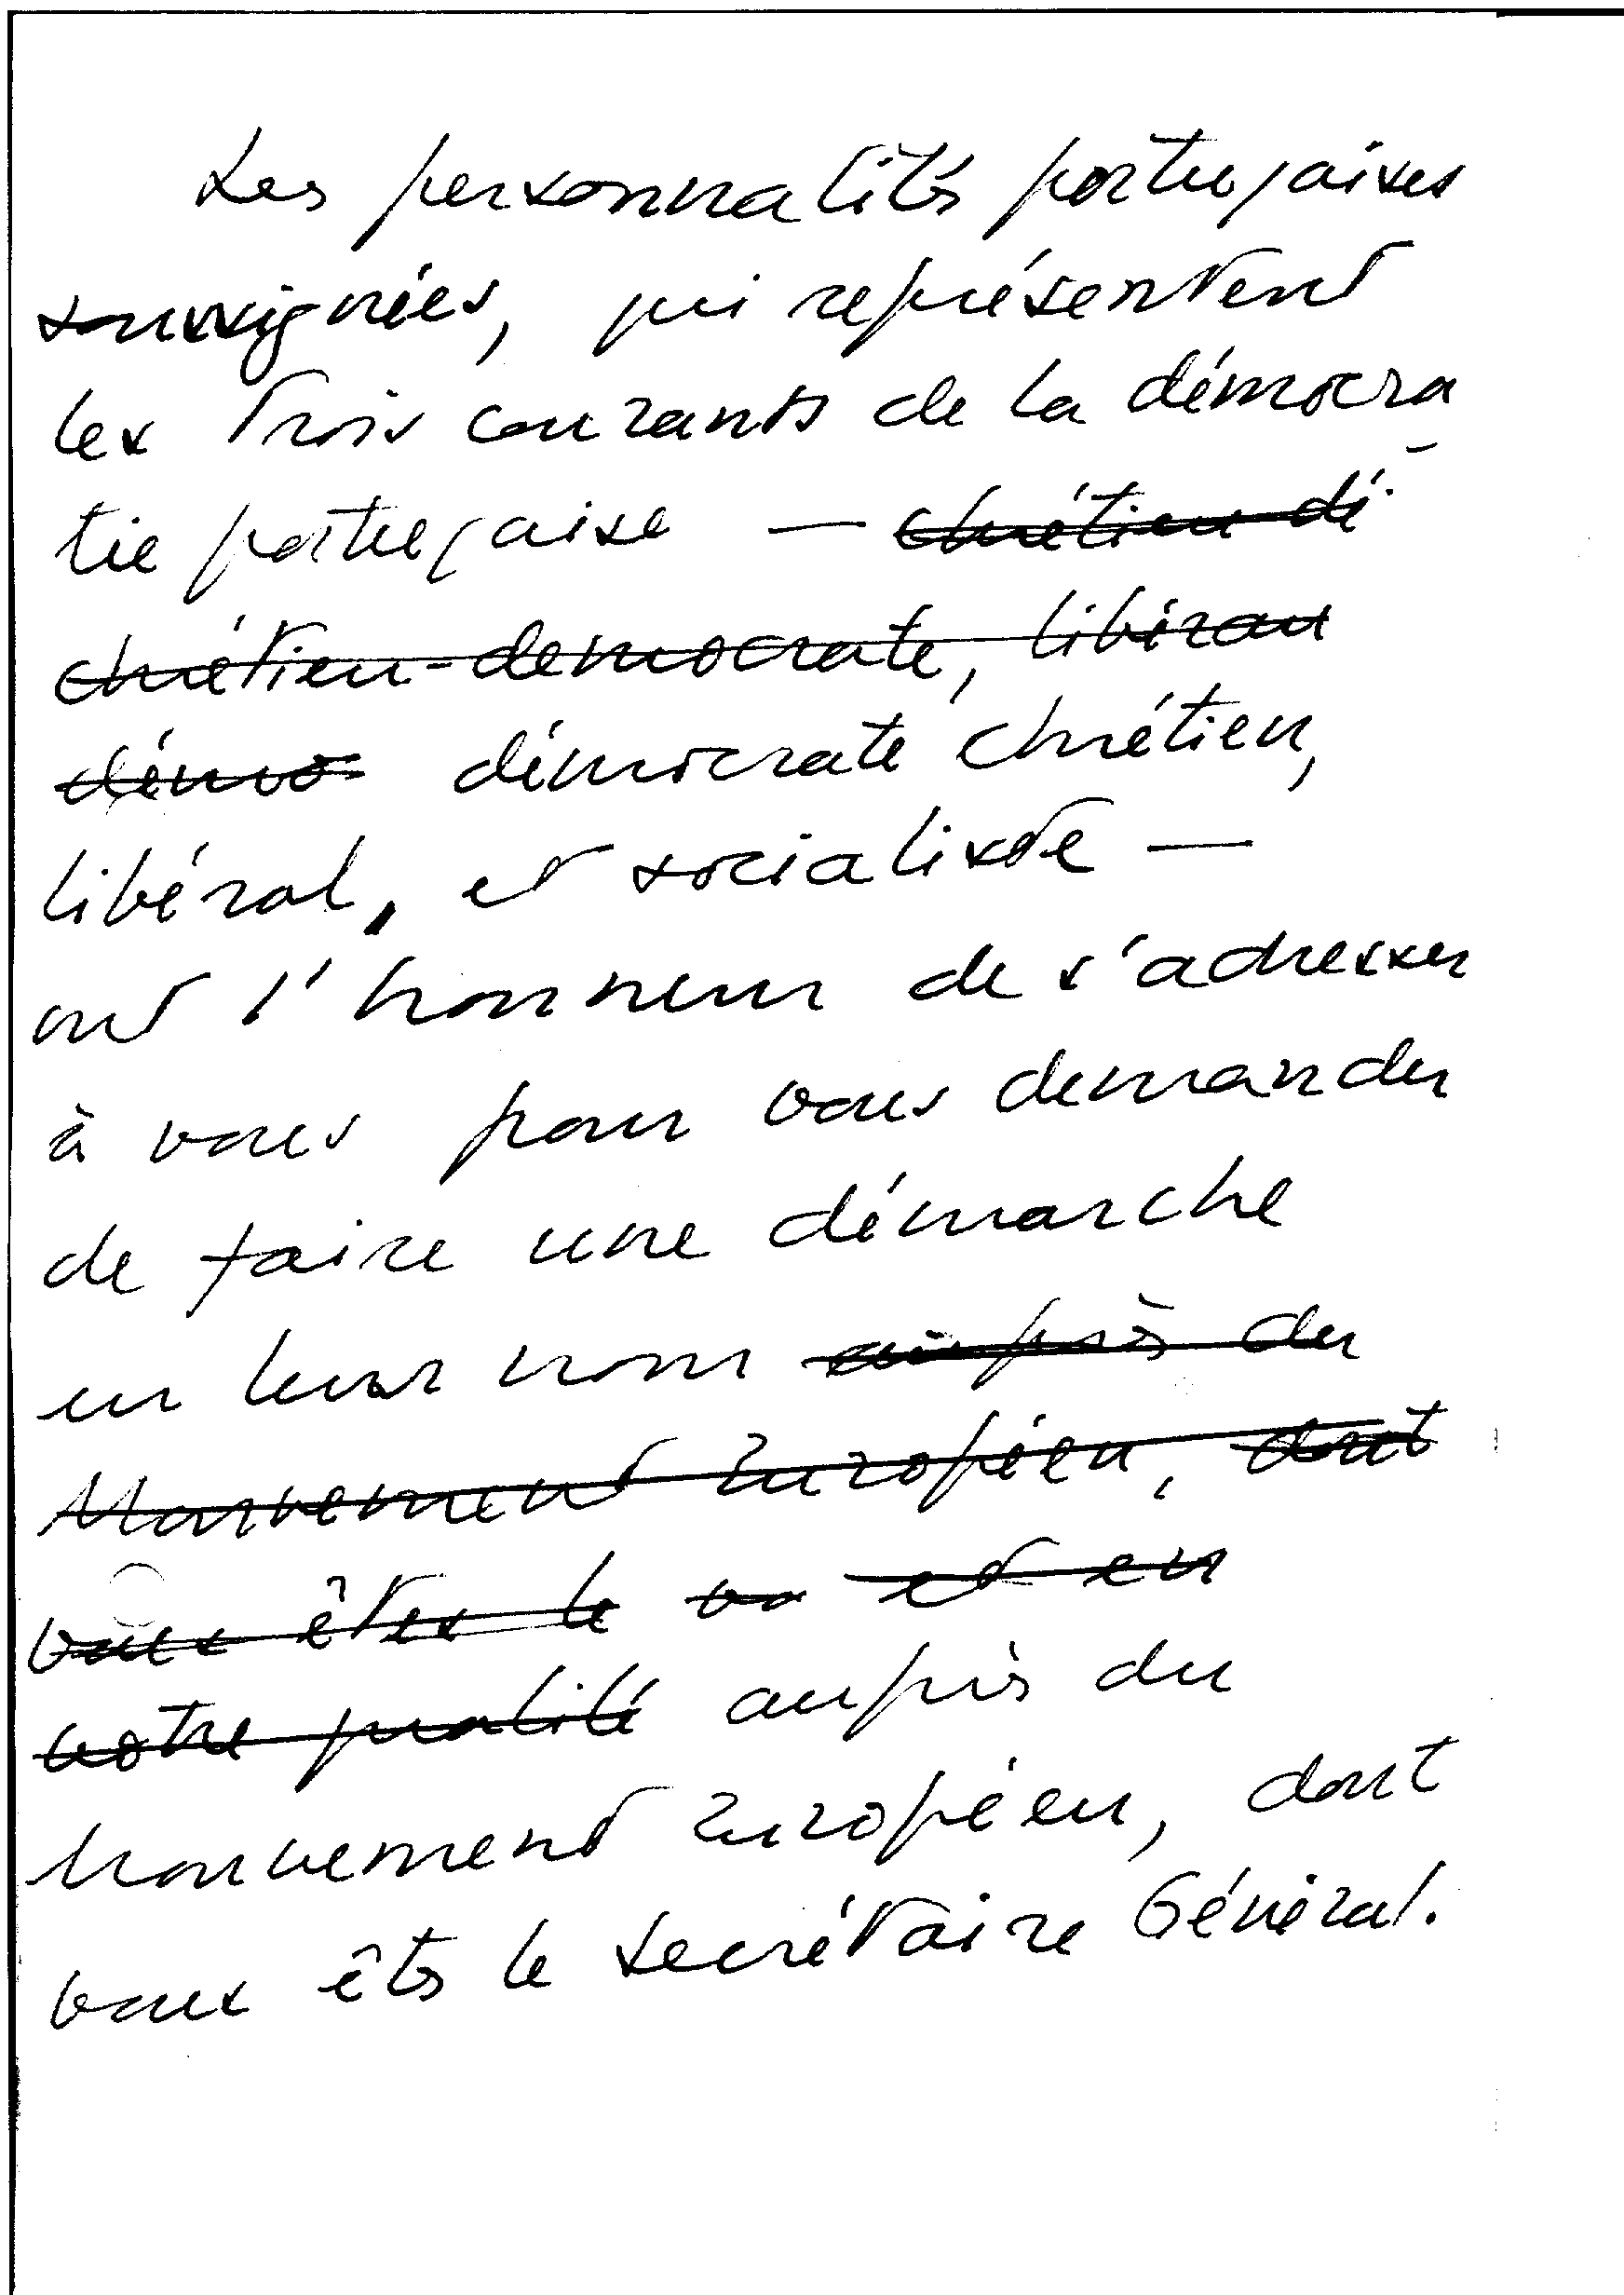 Les personnalités portugaises
soussignées, qui représentent
les trois courants de la démocra-
tie portugaise — chrétien dé
chrétien-democrate, libérau
démo- démocrate chrétien,
libéral, et socialiste —
ont l'honneur de s'adresser
à vous pour vous demander
de faire une démarche
en leur nom auprès du
Mouvement Européen, dont
vous êtes le vo et en
votre qualité auprès du
Mouvement Européen, dont
vous êtes le Secrétaire Général.